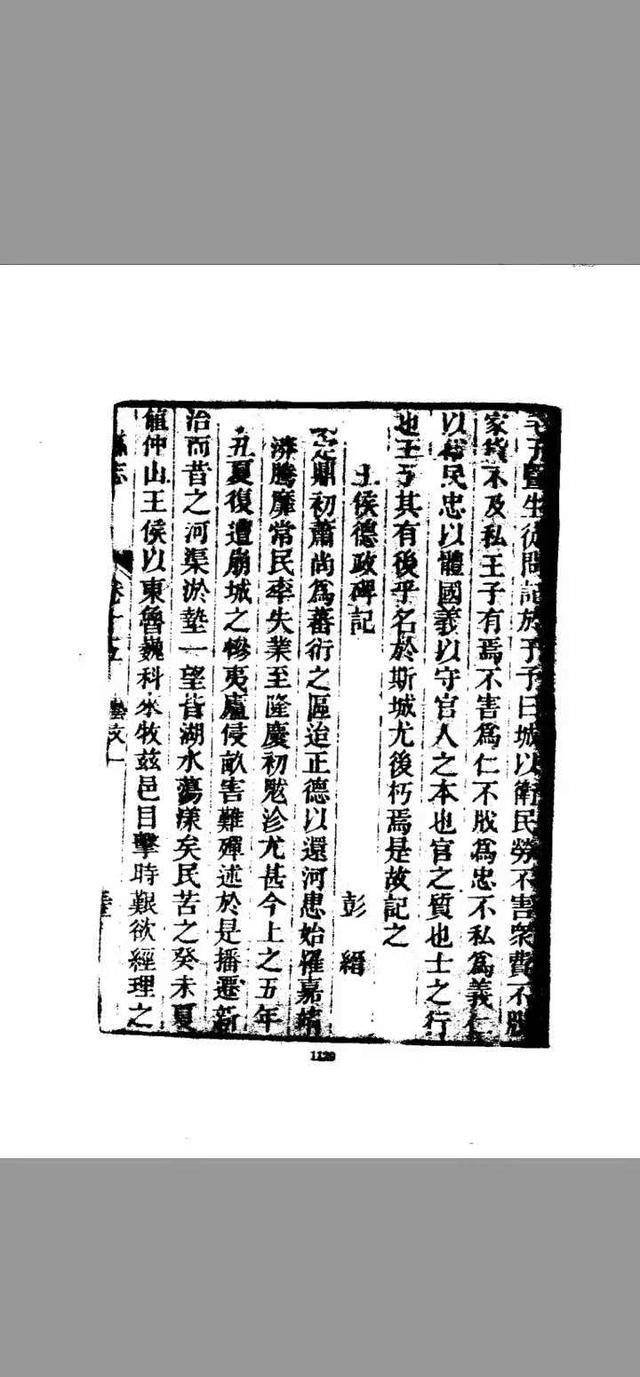 生從問記於予予曰城以衛民勞不害衆費不殷
家貨不及私王子有焉不害為仁不殷為忠不私為義仁
以 民忠以體國義以守官人之本也官之質也士之行
也王子其有後乎名於斯城尤後朽焉是故記之
王侯德政碑記
彭縉
鼎初蕭尚為蕃衍之區迨正德以還河患始罹嘉靖
沸騰靡常民率失業至隆慶初 沴尤甚今上之五年
丑夏復遭崩城之慘夷廬侵畝害難殫述於是播遷新
治而昔之河渠淤墊一望皆湖水蕩漾矣民苦之癸未夏
仲山王侯以東魯巍科來牧茲邑目擊時艱欲經理之
志
卷十五
藝文一
1129